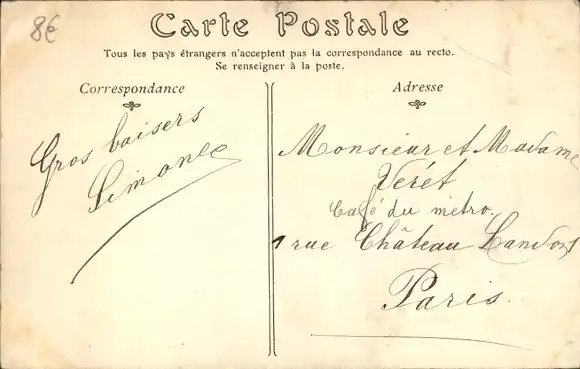 8€
Carte Postale
Tous les pays étrangers n'acceptent pas la correspondance au recto.
Se renseigner à la poste.
Correspondance
Gros baisers
Simone
Adresse
Monsieur et Madame
Verét
Café du métro.
1 rue Château Landon
Paris.